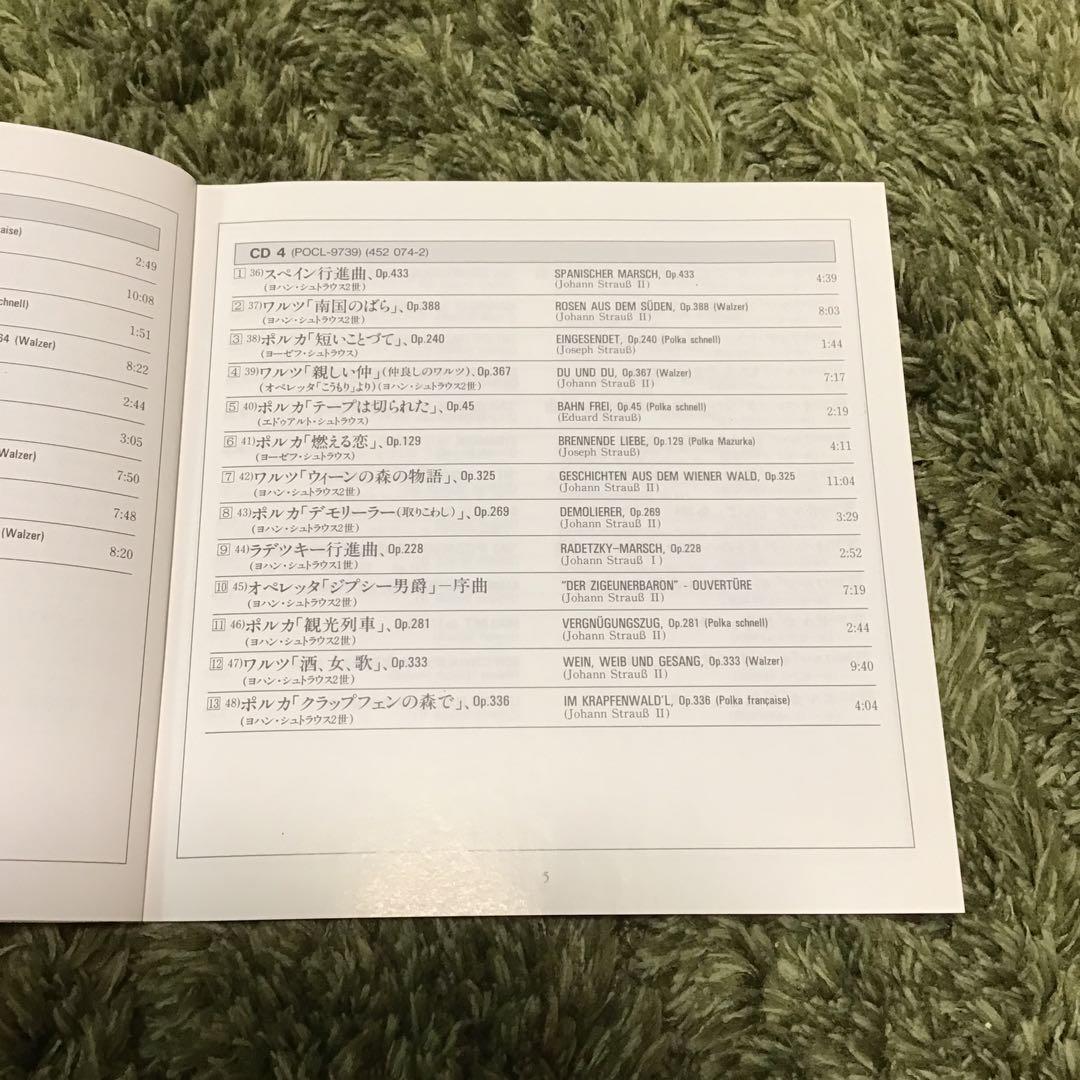 aise)
2:49
10:08
chnell)
1:51
64 (Walzer)
8:22
2:44
3:05
Walzer)
7:50
7:48
(Walzer)
8:20
CD 4 (POCL-9739) (452 074-2)
1 36)スペイン行進曲、Op.433 SPANISCHER MARSCH, Op.433 4:39
(ヨハン・シュトラウス2世) (Johann Strauß II)
2 37)ワルツ「南国のばら」、Op.388 ROSEN AUS DEM SÜDEN, Op.388 (Walzer) 8:03
(ヨハン・シュトラウス2世) (Johann Strauß II)
3 38)ポルカ「短いことづて」、Op.240 EINGESENDET, Op.240 (Polka schnell) 1:44
(ヨーゼフ・シュトラウス) (Joseph Strauß)
4 39)ワルツ「親しい仲」(仲良しのワルツ)、Op.367 DU UND DU, Op.367 (Walzer) 7:17
(オペレッタ「こうもり」より)(ヨハン・シュトラウス2世) (Johann Strauß II)
5 40)ポルカ「テープは切られた」、Op.45 BAHN FREI, Op.45 (Polka schnell) 2:19
(エドゥアルト・シュトラウス) (Eduard Strauß)
6 41)ポルカ「燃える恋」、Op.129 BRENNENDE LIEBE, Op.129 (Polka Mazurka) 4:11
(ヨーゼフ・シュトラウス) (Joseph Strauß)
7 42)ワルツ「ウィーンの森の物語」、Op.325 GESCHICHTEN AUS DEM WIENER WALD, Op.325 11:04
(ヨハン・シュトラウス2世) (Johann Strauß II)
8 43)ポルカ「デモリーラー(取りこわし)」、Op.269 DEMOLIERER, Op.269 3:29
(ヨハン・シュトラウス2世) (Johann Strauß II)
9 44)ラデツキー行進曲、Op.228 RADETZKY-MARSCH, Op.228 2:52
(ヨハン・シュトラウス1世) (Johann Strauß I)
10 45)オペレッタ「ジプシー男爵」―序曲 "DER ZIGEUNERBARON" - OUVERTÜRE 7:19
(ヨハン・シュトラウス2世) (Johann Strauß II)
11 46)ポルカ「観光列車」、Op.281 VERGNÜGUNGSZUG, Op.281 (Polka schnell) 2:44
(ヨハン・シュトラウス2世) (Johann Strauß II)
12 47)ワルツ「酒、女、歌」、Op.333 WEIN, WEIB UND GESANG, Op.333 (Walzer) 9:40
(ヨハン・シュトラウス2世) (Johann Strauß II)
13 48)ポルカ「クラップフェンの森で」、Op.336 IM KRAPFENWALD'L, Op.336 (Polka française) 4:04
(ヨハン・シュトラウス2世) (Johann Strauß II)
5